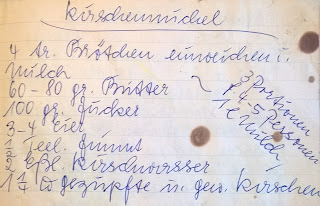 Kirschenmichel
4 tr. Brötchen einweichen i.
Milch
60-80 gr. Butter
100 gr. Zucker
3-4 Eier
Teel. Zimmt
Eßl. Kirschwasser
1 ℔ gezupfte u. gew. Kirschen
3 Portionen
4-5 Personen
1 l Milch